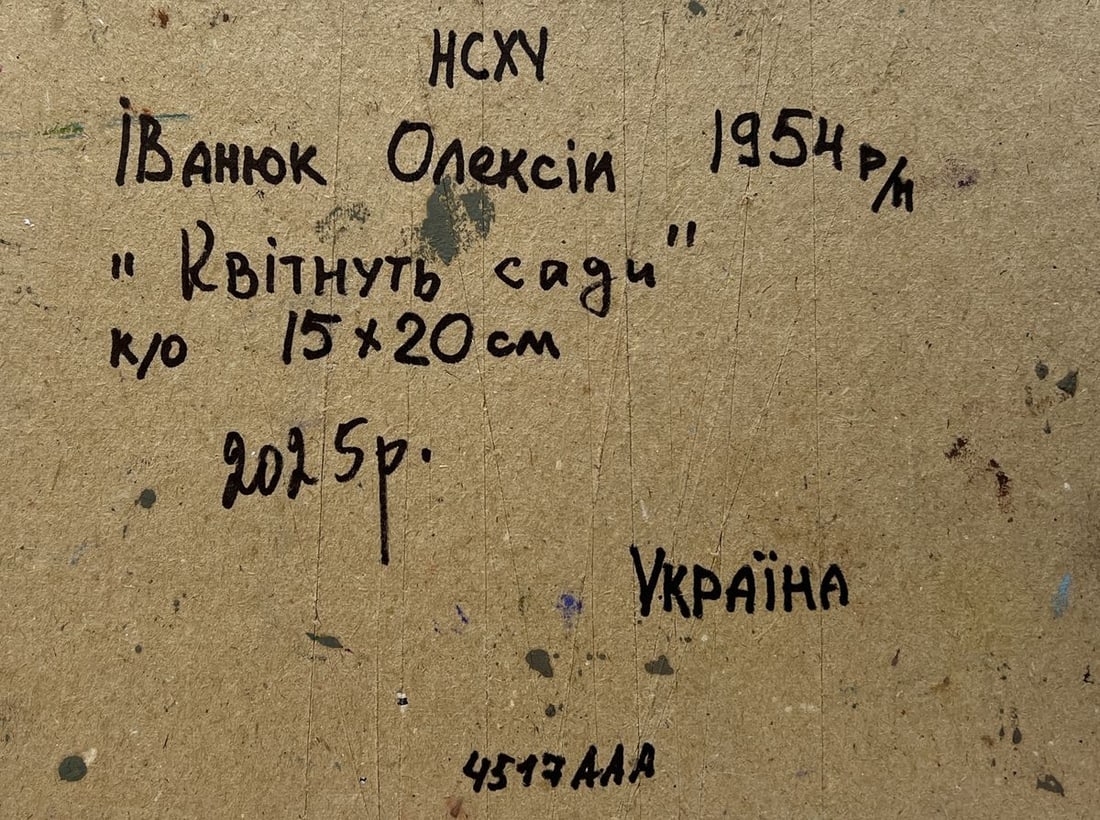 НСХУ
Іванюк Олексій 1954 р/н
"Квітнуть сади"
к/о 15х20 см
2025р.
Україна
4517ААА